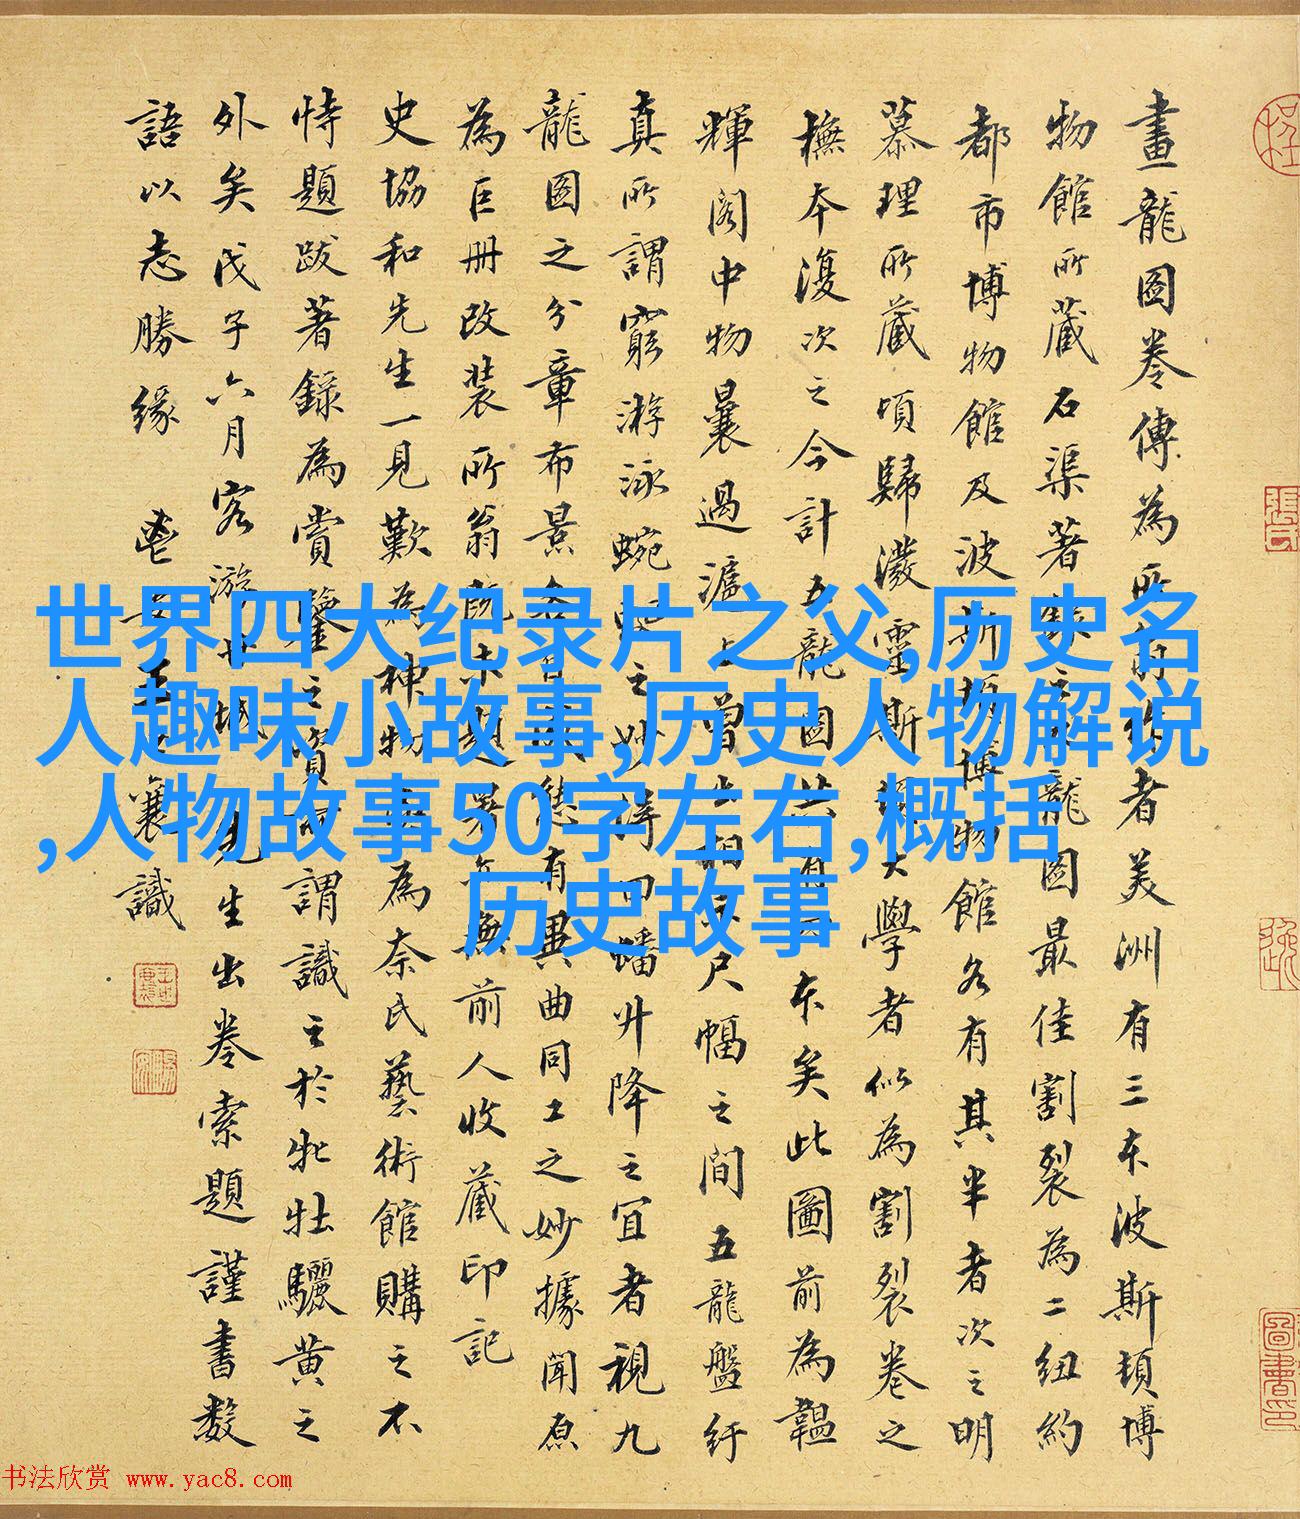 畫龍圖卷傳為所翁
者美洲有三本波斯頓博
物館所藏石渠著錄
龍圖最佳割裂為二紐約
都市博物館及波斯頓博物館各有其半者次之明
慕理所藏頃歸瀎靈斯
大學者似為割裂卷之
撫本復次之今計五龍圖共有
本矣此圖前為韞
輝閣中物曩過滬上曾
尺幅之間五龍盤紆
真所謂窮游泳蜿
之妙得回蟠升降之宜者視九
龍圖之分章布景
有異曲同工之妙據聞原
為巨冊改裝所翁既未題署亦無前人收藏印記
史協和先生一見歎為神物
為奈氏藝術館購之不
特題跋著錄為賞鑒之資
謂識之於牝牡驪黃之
外矣戊子六月客游廿城
先生出卷索題謹書數
語以志勝緣
王
襄識
世界四大纪录片之父,历史名
人趣味小故事,历史人物解说
,人物故事50字左右,概括
历史故事
书法欣赏 www.yac8.com